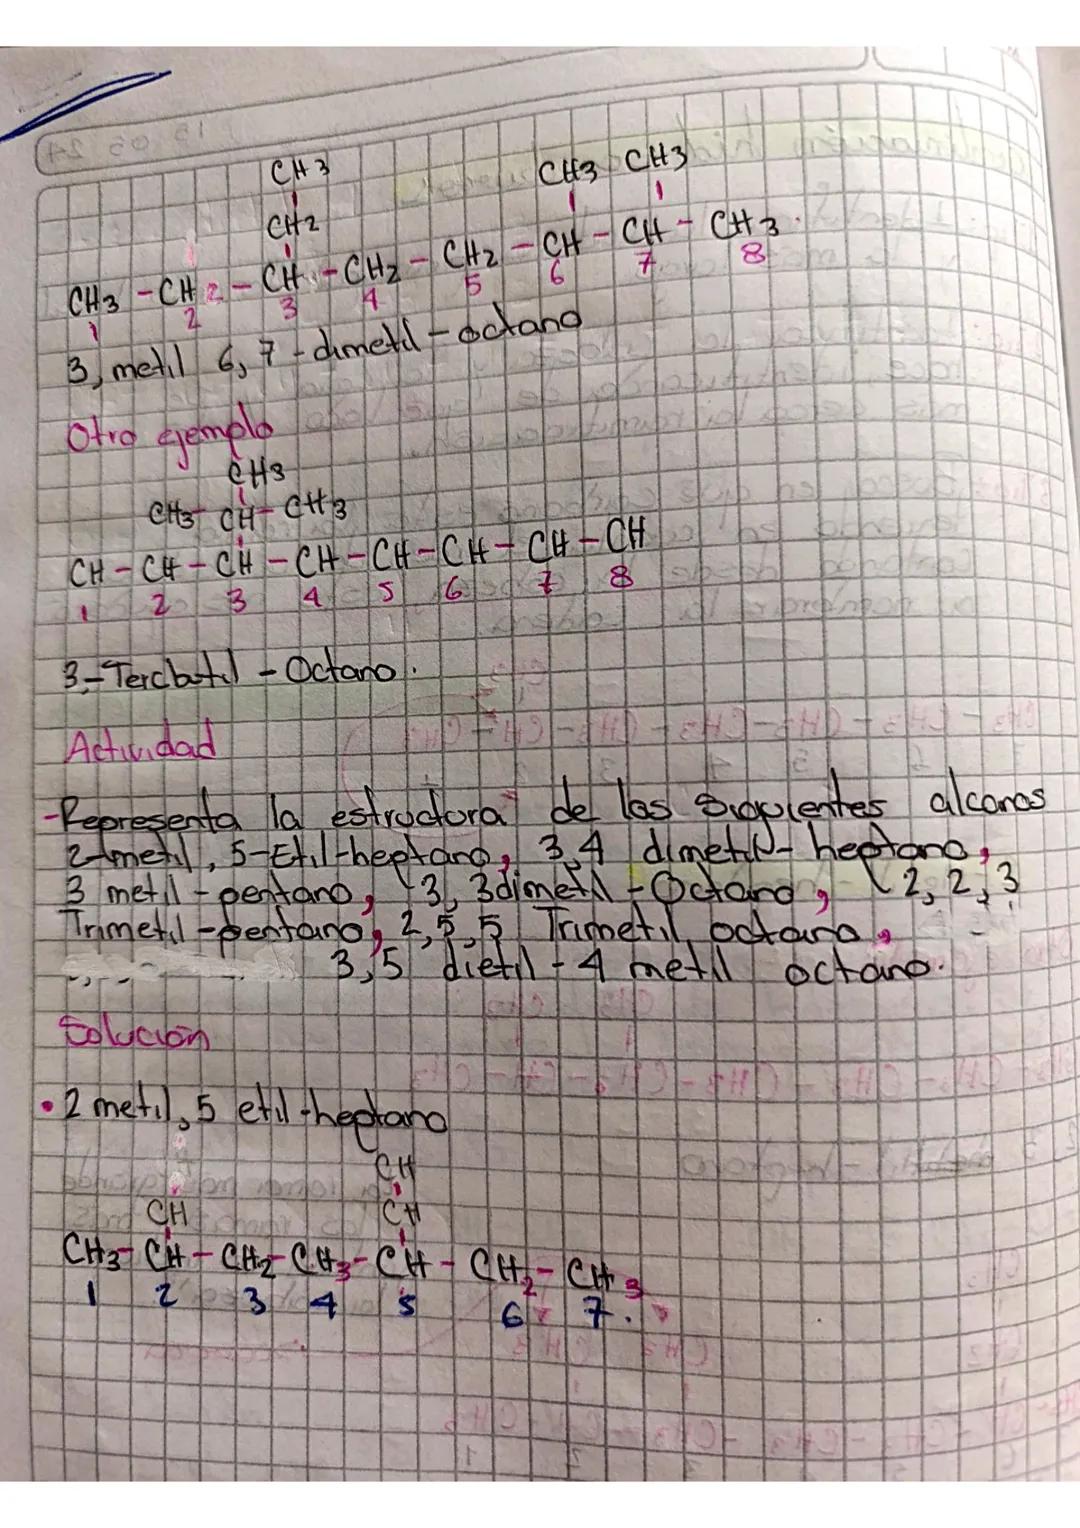 CH3 CH3 CH3
CH2
CH3 - CH2 - CH - CH2 - CH2 - CH - CH - CH3
1 2 3 4 5 6 7 8
3, metil 6, 7 - dimetil - octano
Otro ejemplo
CH3
CH3 - CH - CH3
CH - CH - CH - CH - CH - CH - CH - CH
1 2 3 4 5 6 7 8
3-Tercbutil - Octano.
Actividad
-Representa la estructura de los siguientes alcanos
2-metil, 5-Etil-heptano, 3,4 dimetil- heptano,
3 metil - pentano, 3, 3dimetil - Octano, 2, 2, 3
Trimetil - pentano, 2, 5, 5 Trimetil octano,
3,5 dietil - 4 metil octano.
Solución
• 2 metil, 5 etil - heptano
CH
CH CH
CH3 - CH - CH2 - CH3 - CH - CH2 - CH3
1 2 3 4 5 6 7.